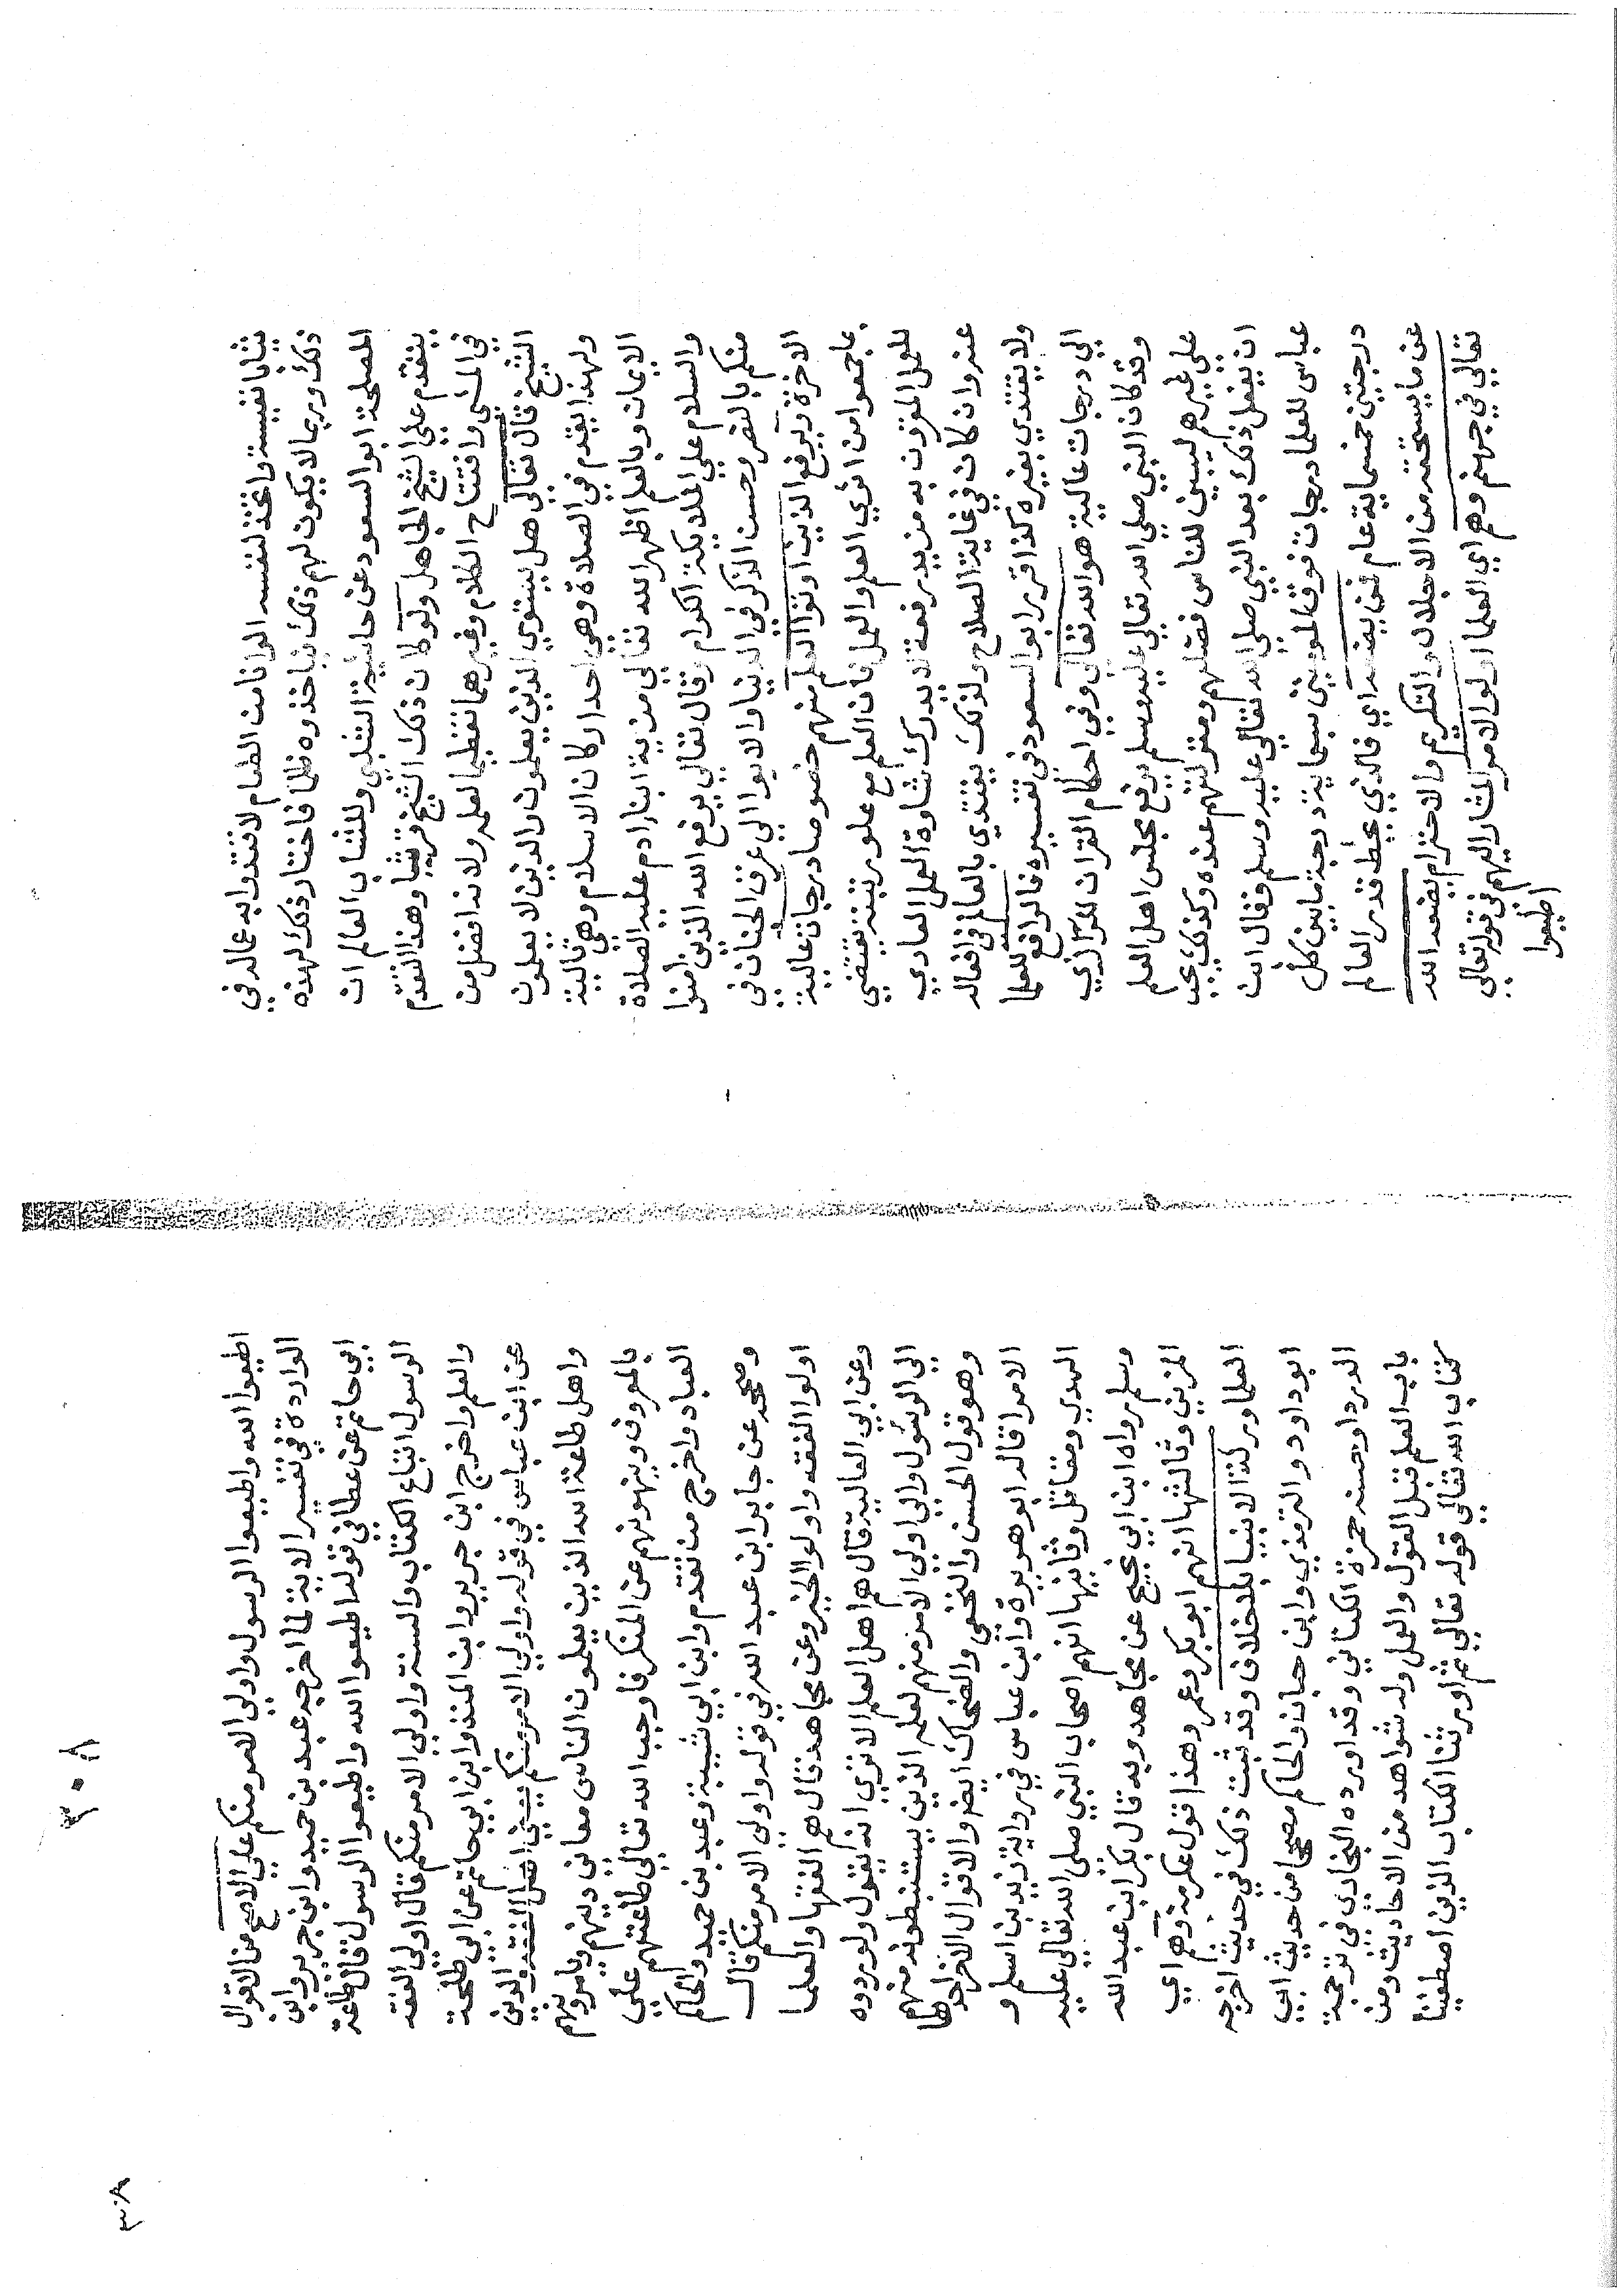 ثيابا نفيسة واتخذ لنفسه الوانا من الطعام لاقتدوا به عماله في
ذلك وربما لا يكون لهم ذلك فياخذوه ظلما فاختار ذلك لهذه
المصلحة ابو السعود عن حاشية الشلبي وللشاب العالم ان
يتقدم علي الشيخ الجاهل ولو كان ذلك الشيخ قرشيا وهذا التقدم
في المشي وافتتاح الكلام وغيرهما تعظيما لعلمه ولانه افضل من
الشيخ قال تعالي هل يستوي الذين يعلمون والذين لا يعلمون
ولهذا يقدم في الصلاة وهي احد اركان الاسلام وهي تالية
الايمان وبالعلم اظهر الله تعالي مزية ابنا ادم عليه الصلاة
والسلام علي الملايكة الكرام وقال تعالي يرفع الله الذين امنوا
منكم بالنصر وحسن الذكر في الدنيا والايوا الي غرف الجنان في
الاخرة ويرفع الذين اوتوا العلم منهم خصوصا درجات عالية
بما جمعوا من اثري العلم والعمل فان العلم مع علو رتبته يقتضي
للعمل المقرون به مزيد رفعة لا يدرك شاوه العمل العاري
عنه وان كان في غاية الصلاح ولذلك يقتدي بالعالم في افعاله
ولا يقتدي بغيره كذا قرر ابو السعود في تفسيره فالرافع للعلما
الي درجات عالية هو الله تعالي وفي احكام القران للرازي
وقد كان النبي صلي الله تعالي عليه وسلم يرفع مجلس اهل العلم
علي غيرهم ليبين للناس فضلهم ومنزلتهم عنده وكذلك يجب
ان يفعل ذلك بعد النبي صلي الله تعالي عليه وسلم فقال ابن
عباس للعلما درجات فوق المومنين سبعماية درجة ما بين كل
درجتين خمسماية عام فمن يضعه اي فالذي يحط قدر العالم
عن ما يستحقه من الاجلال والتكريم والاحترام يضعه الله
تعالي في جهنم وهم اي العلما اولوا الامر المشار اليهم في قوله تعالى
اطيعوا
٣٠٨
٣٠٨
اطيعوا الله واطيعوا الرسول واولي الامر منكم علي الاصح من الاقوال
الواردة في تفسير الاية لما اخرجه عبد بن حميد وابن جرير وابن
ابي حاتم عن عطا في قوله اطيعوا الله واطيعوا الرسول قال طاعة
الرسول اتباع الكتاب والسنة واولي الامر منكم قال اولي الفقه
والعلم واخرج ابن جرير وابن المنذر وابن ابي حاتم عن ابي طلحة
عن ابن عباس في قوله واولي الامر منكم يعني اهل الفقه والدين
واهل طاعة الله الذين يعلمون الناس معاني دينهم ويامرونهم
بالمعروف وينهونهم عن المنكر فاوجب الله تعالي طاعتهم علي
العباد واخرج من تقدم وابن ابي شيبة وعبد بن حميد والحاكم
وصححه عن جابر ابن عبد الله في قوله واولي الامر منكم قال
اولوا الفقه واولوا الخير وعن مجاهد قال هم الفقها والعلما
وعن ابي العالية قال هم اهل العلم الا تري انه يقول ولو ردوه
الي الرسول والي اولي الامر منهم لعلمه الذين يستنبطونه منهم
وهو قول الحسن والنخعي والضحاك ايضا والاقوال الاخر احدها
الامرا قاله ابو هريرة وابن عباس في رواية زيد بن اسلم و
السدي ومقاتل وثانيها انهم اصحاب النبي صلي الله تعالي عليه
وسلم رواه ابن ابي نجيح عن مجاهد وبه قال بكر ابن عبد الله
المزني وثالثها انهم ابو بكر وعمر وهذا قول عكرمة وهم اي
العلما ورثة الانبيا بلا خلاف وقد ثبت ذلك في حديث اخرجه
ابو داود والترمذي وابن حبان والحاكم مصححا من حديث ابي
الدردا وحسنه حمزة الكناني وقد اورده البخاري في ترجمة
باب العلم قبل القول والعمل وله شواهد من الاحاديث ومن
كتاب الله تعالي قوله تعالي ثم اورثنا الكتاب الذين اصطفينا